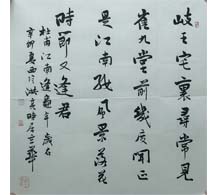 岐王宅裏尋常見
崔九堂前幾度聞正
是江南好風景落花
時節又逢君
杜甫江南逢龜年歲在
辛卯夏